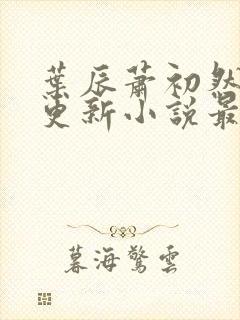 葉辰蕭初然
更新小說最
暮海驚雲